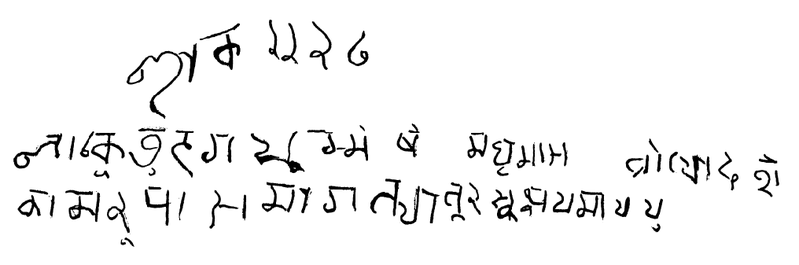 শাক ১১২৭
শাকে তুরগযুগ্মেশে মধুমাস ত্রয়োদশে
কামরূপং সমাগত্য তুরুষ্কাঃ ক্ষয়মাযযুঃ